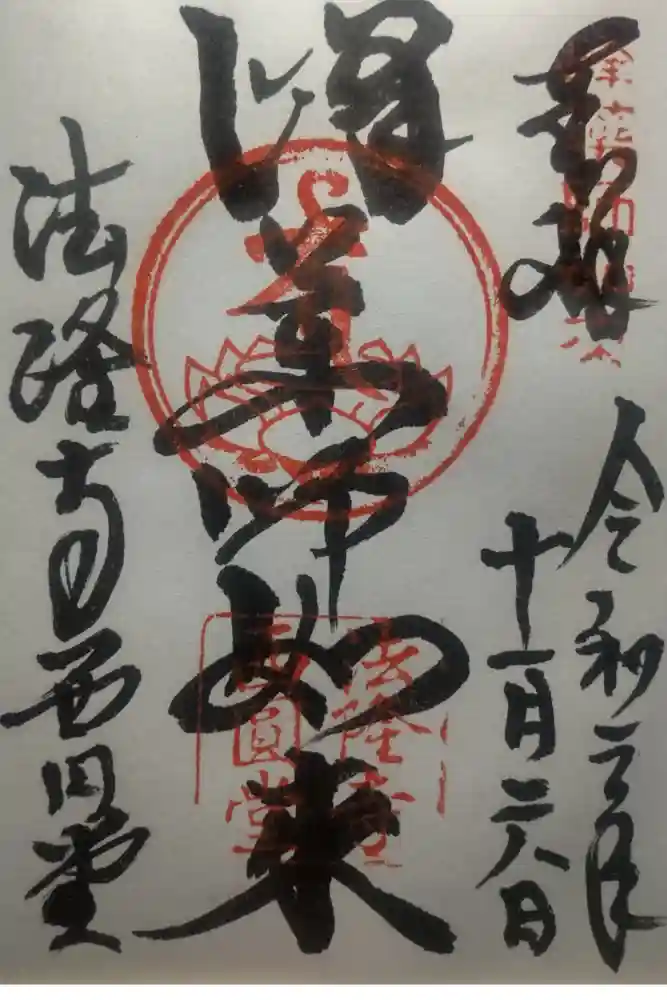 奉拝
令和元年
十一月二八日
峰薬師如来
法隆寺
西圓堂
法隆寺西円堂